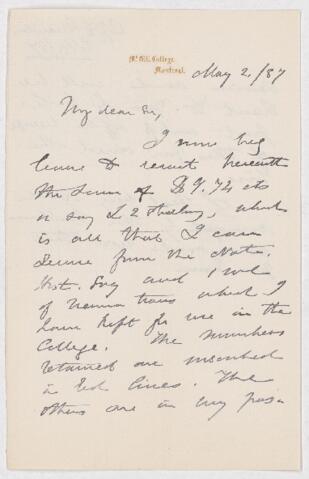 McGill College,
Montreal.
May 2/87
My dear Sir,
I now beg
leave to remit herewith
the sum of $9.74 cts
or say £2 Sterling, which
is all that I can
from the Nat.
Hist. Soc and
of which I
have kept for use in the
College. The numbers
retained are inscribed
in red lines. The
others are in my poss-